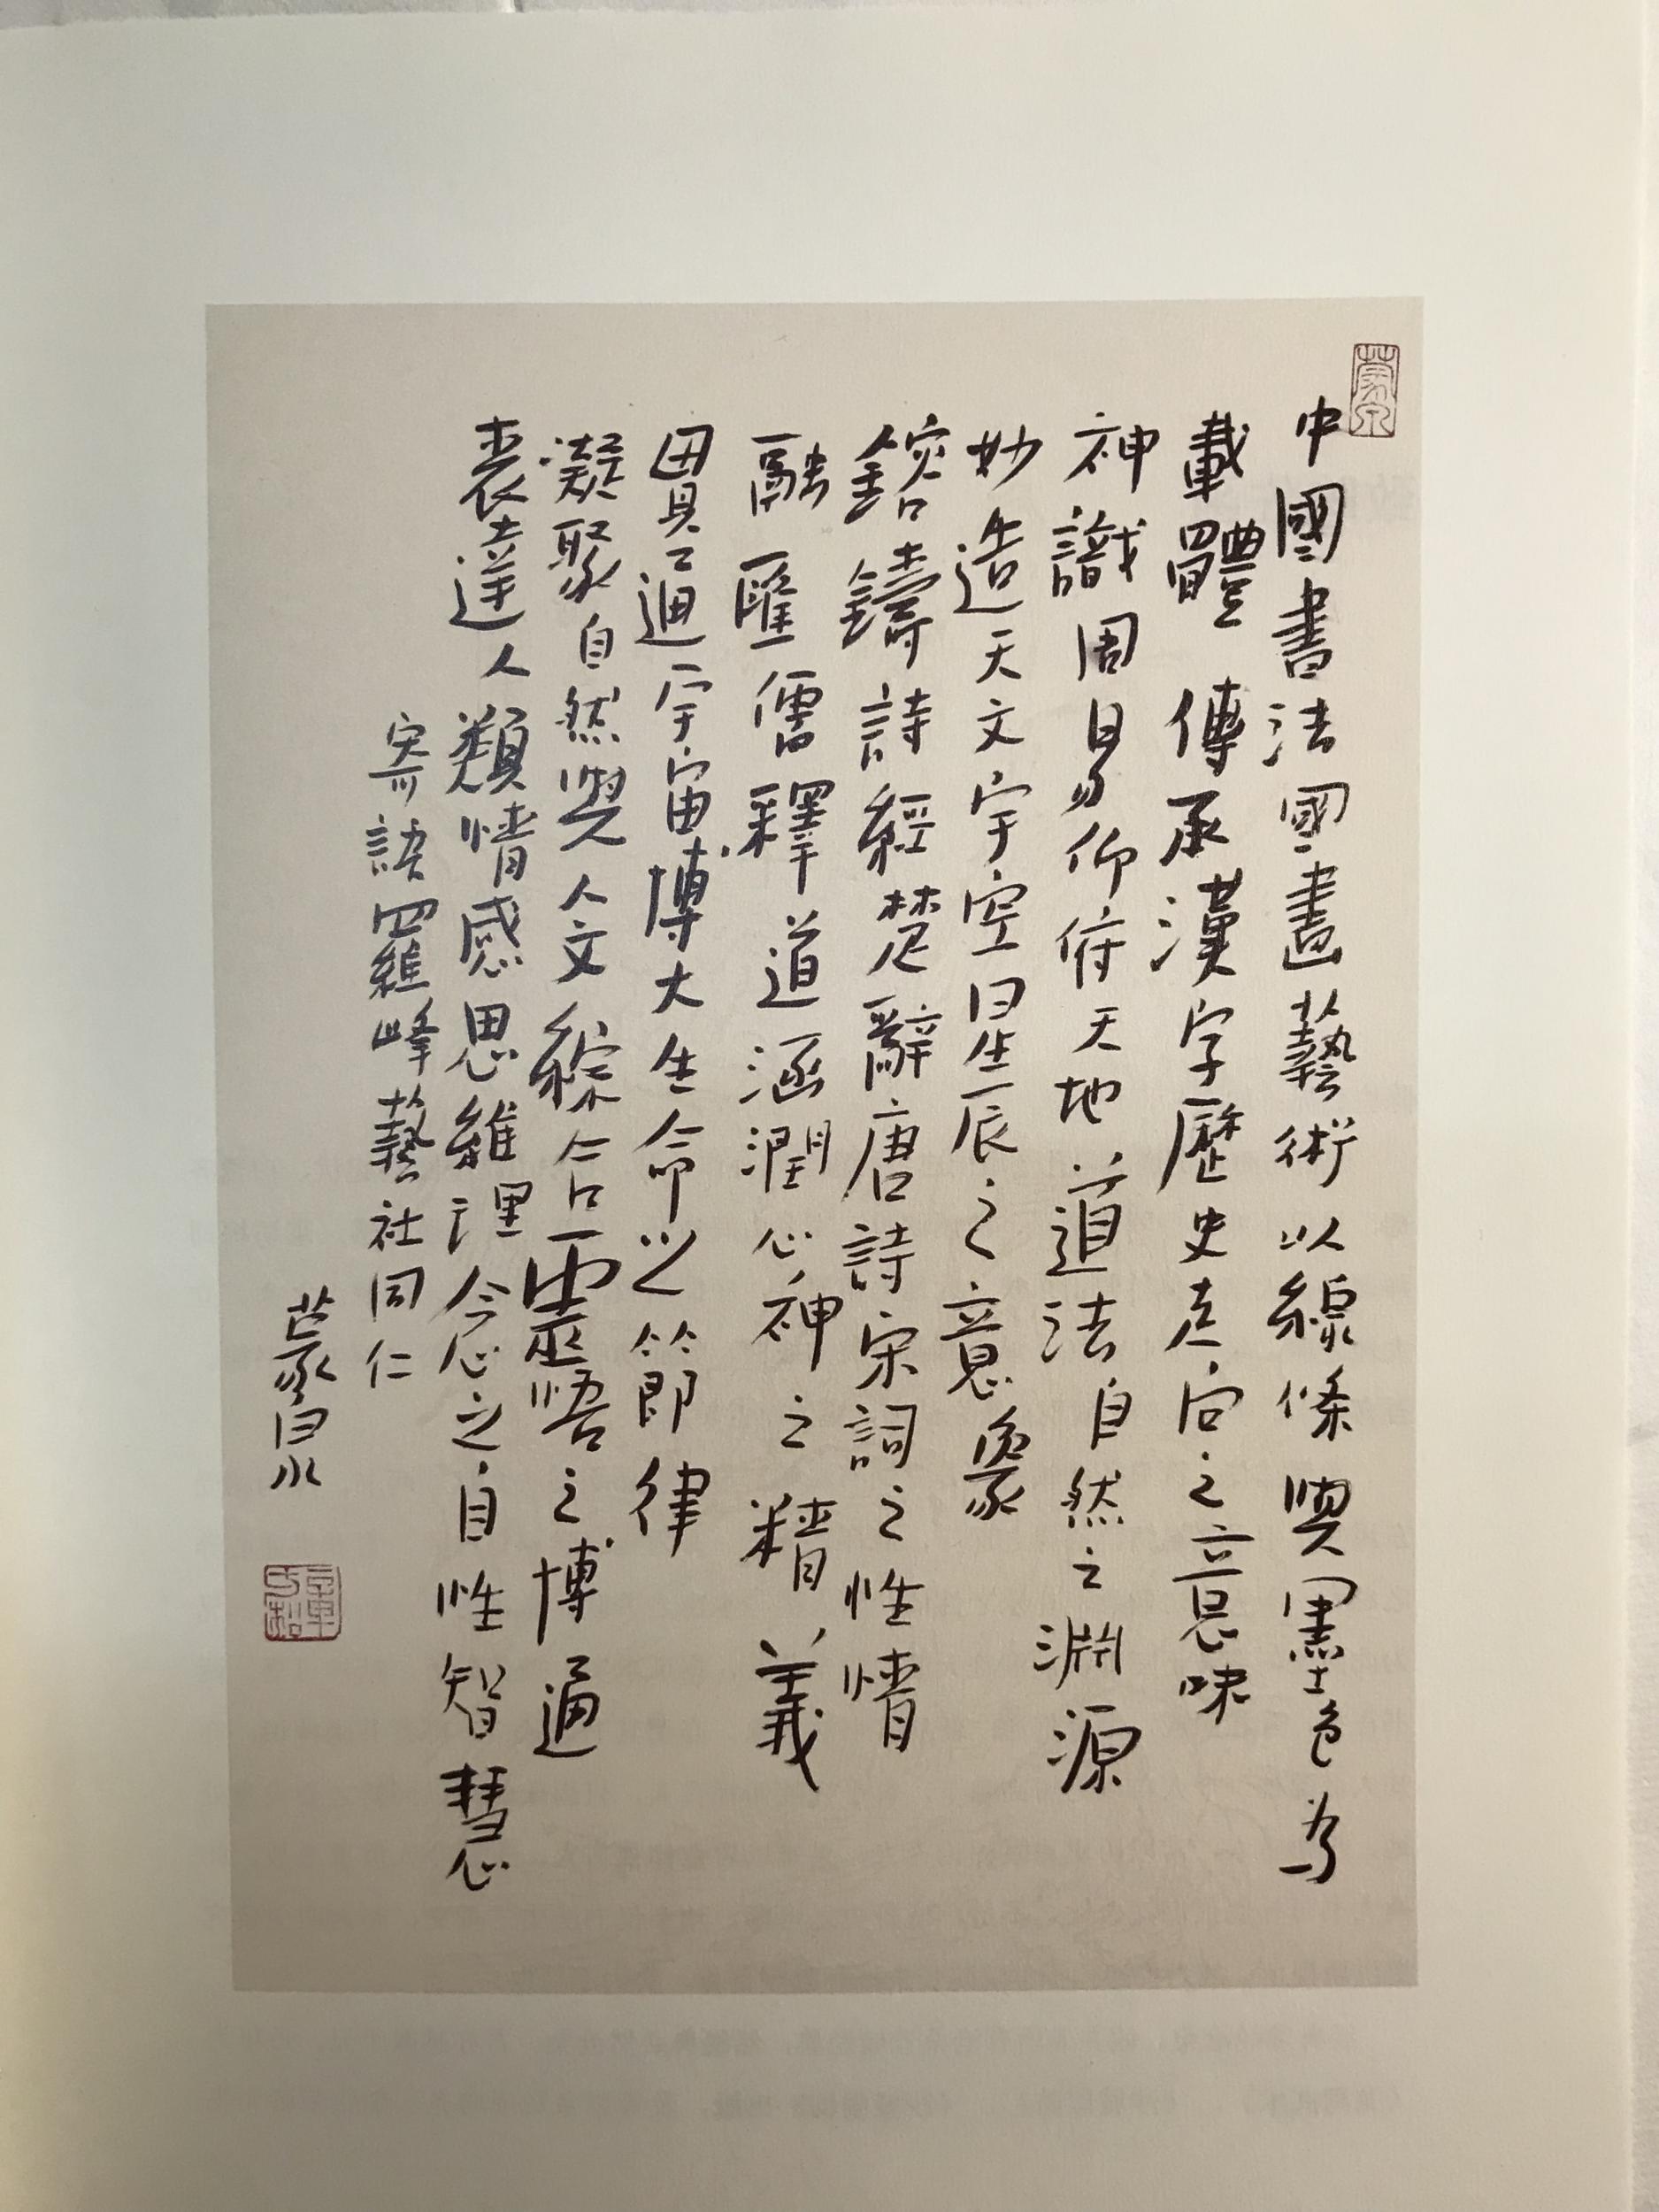 中國書法國畫藝術以線條與墨色為
載體傳承漢字歷史走向之意味
神識周易仰俯天地道法自然之淵源
妙造天文宇空星辰之意象
鎔鑄詩經楚辭唐詩宋詞之性情
融匯儒釋道涵潤心神之精義
貫通宇宙博大生命之節律
凝聚自然與人文綜合靈悟之博通
表達人類情感思維理念之自性智慧
寄語羅峰藝社同仁
蒙泉